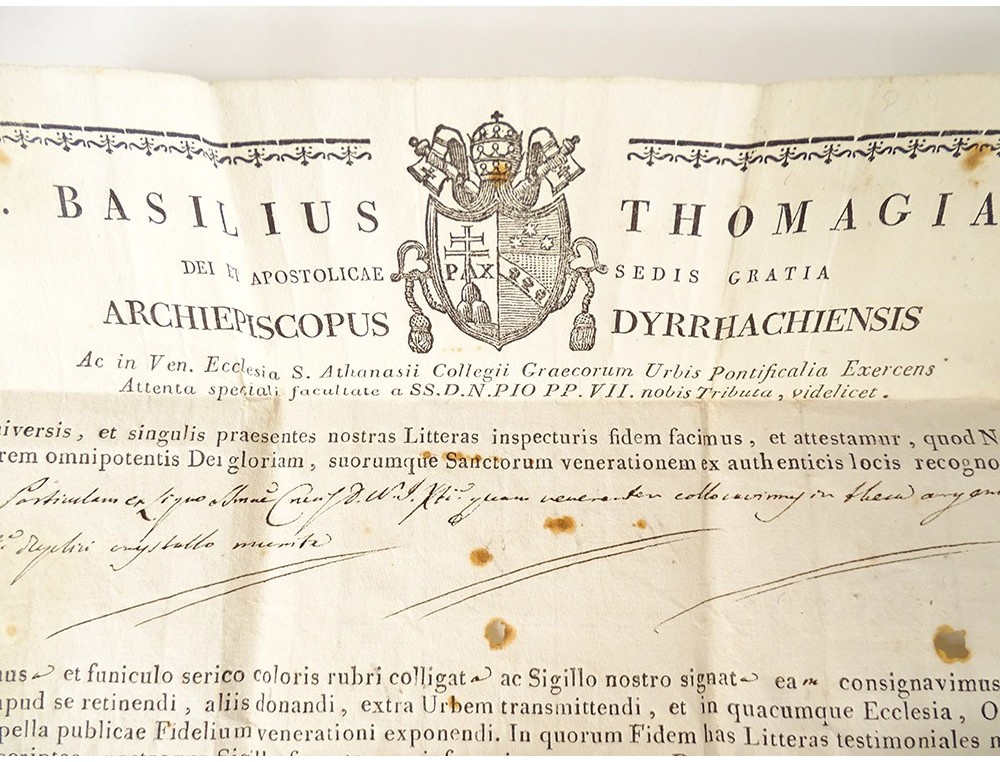 . BASILIUS THOMAGIA
PAX
DEI ET APOSTOLICAE SEDIS GRATIA
ARCHIEPISCOPUS DYRRHACHIENSIS
Ac in Ven. Ecclesia S. Athanasii Collegii Graecorum Urbis Pontificalia Exercens
Attenta speciali facultate a SS.D.N.PIO PP.VII. nobis Tributa, videlicet.
iversis, et singulis praesentes nostras Litteras inspecturis fidem facimus, et attestamur, quod N
rem omnipotentis Dei gloriam, suorumque Sanctorum venerationem ex authenticis locis recogno
Particulam ex Ligno Smae Crucis D.N.J. Xti quam reverenter collocavimus in theca argen
duplici crystallo munita
us et funiculo serico coloris rubri colligat ac Sigillo nostro signat eam consignavimus
pud se retinendi, aliis donandi, extra Urbem transmittendi, et in quacumque Ecclesia, O
pella publicae Fidelium venerationi exponendi. In quorum Fidem has Litteras testimoniales